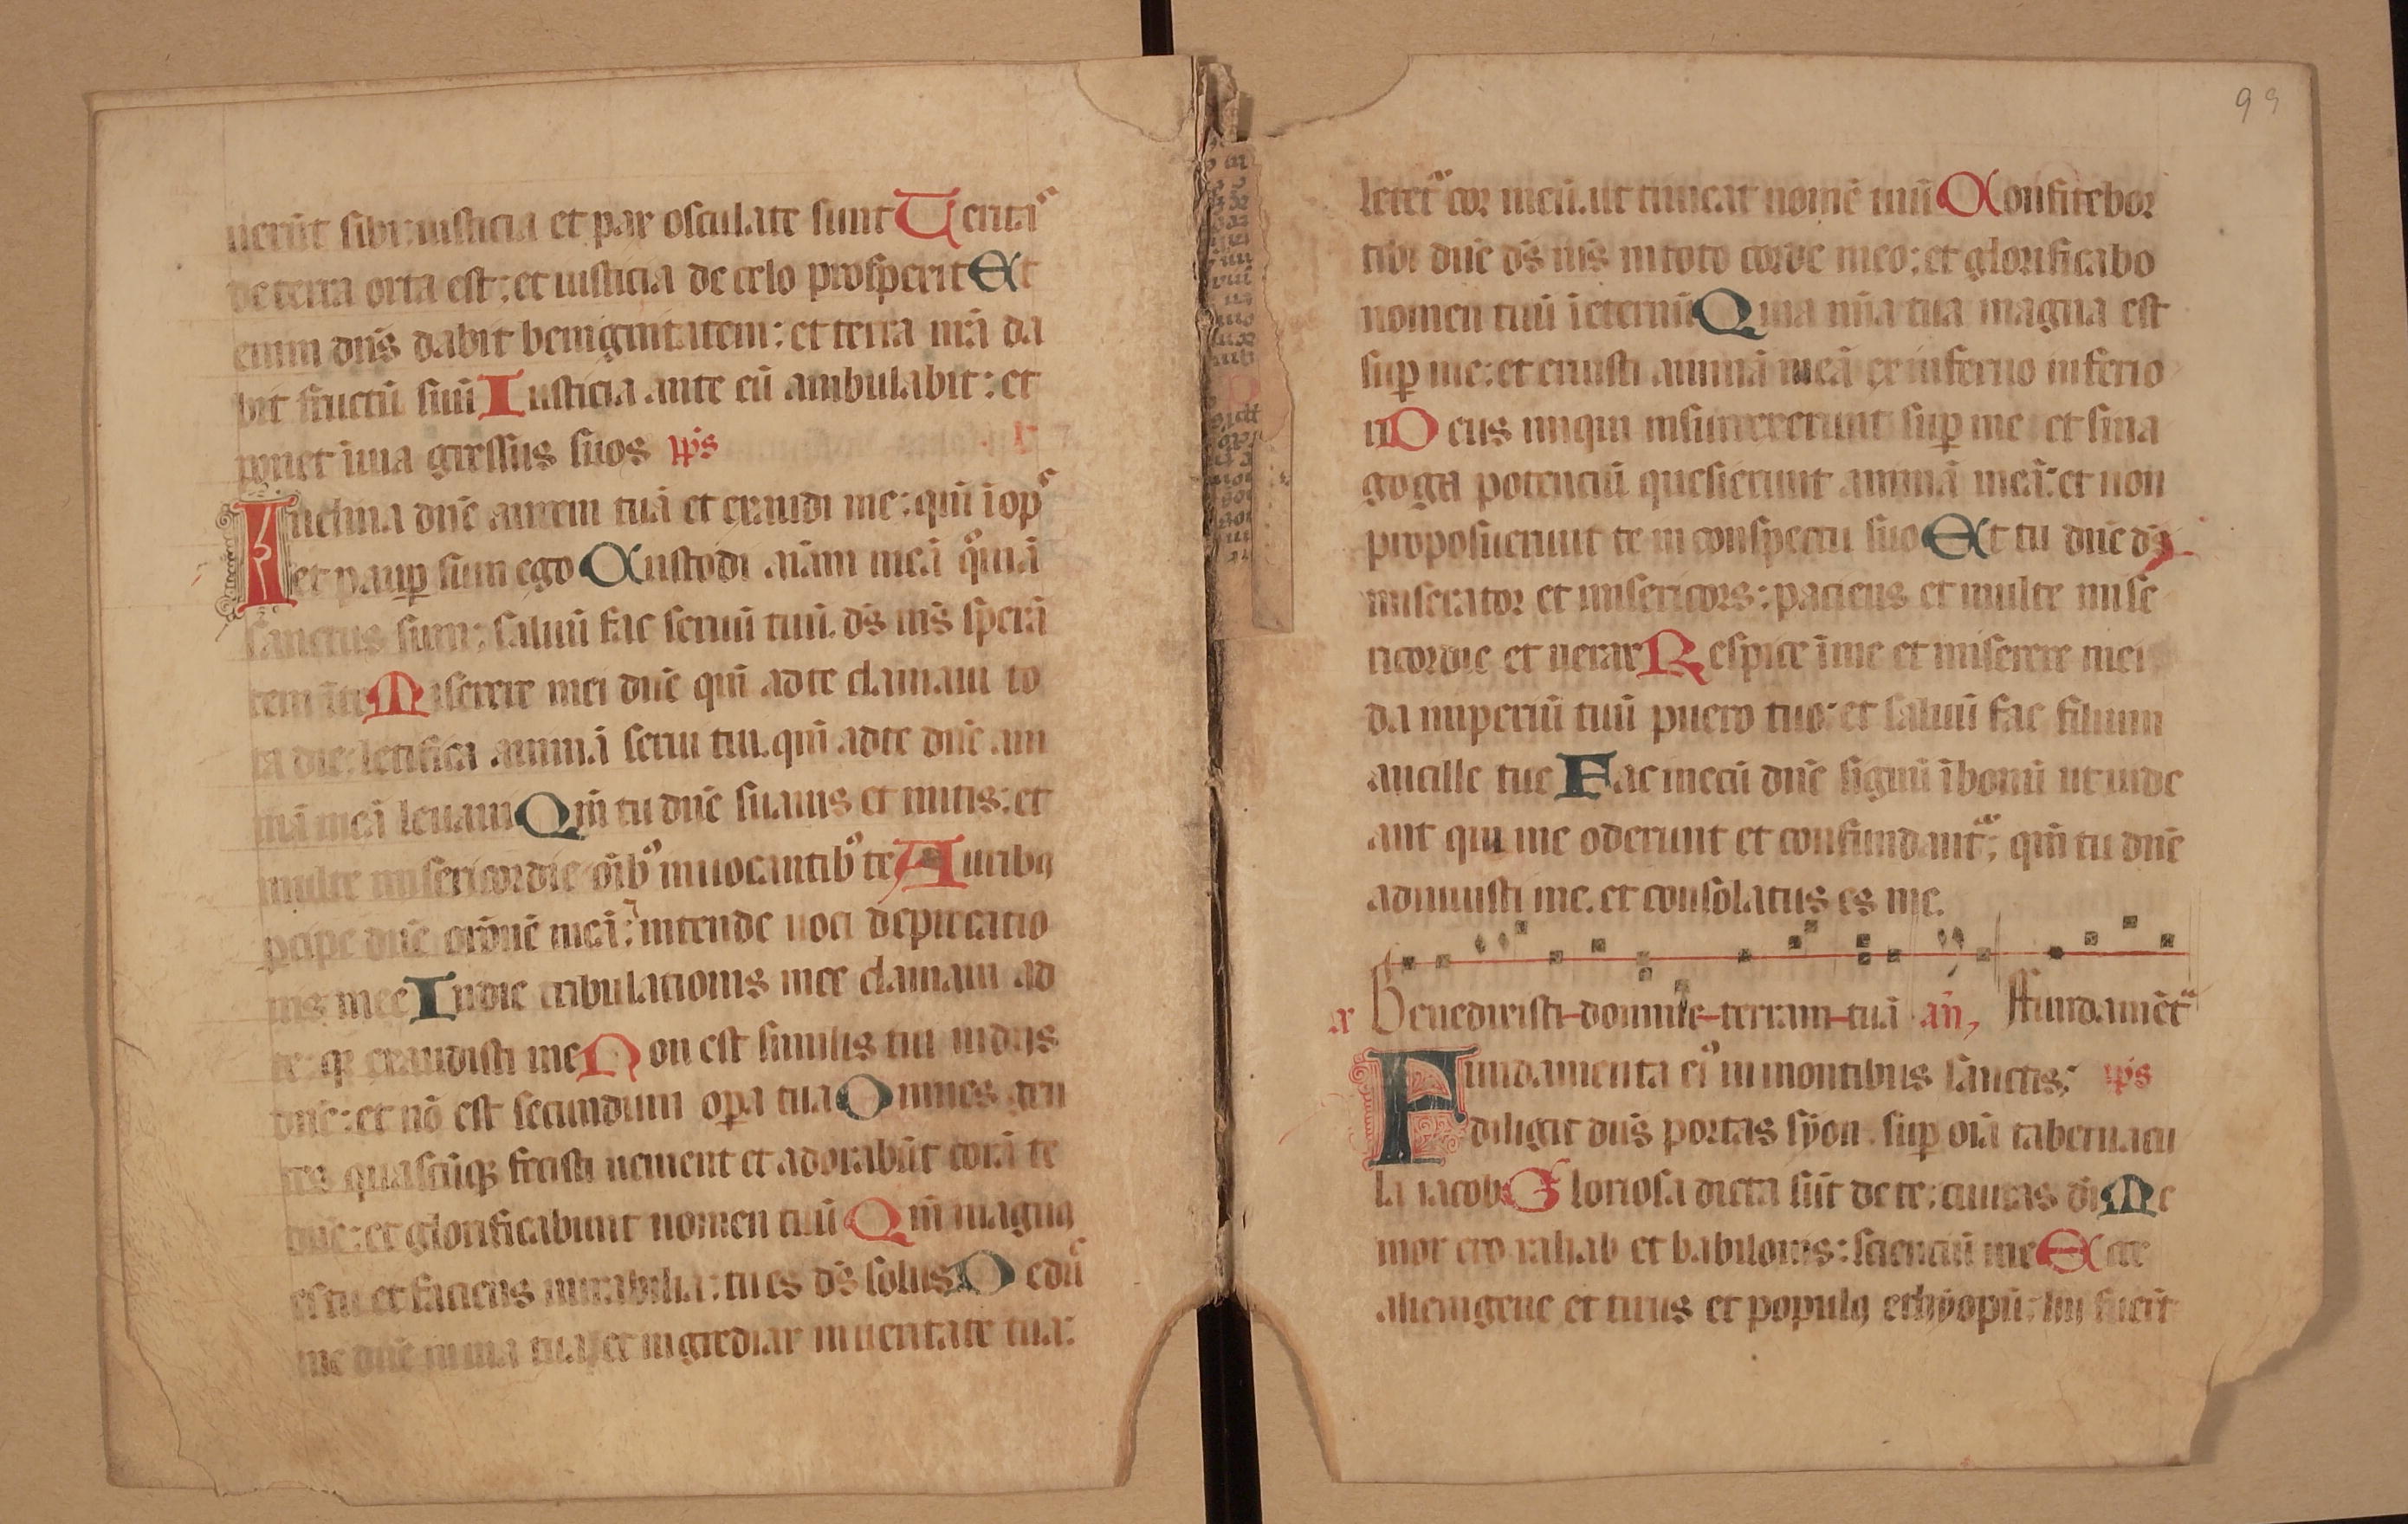 uerūt sibi: iusticia et pax osculate sunt Uerita᷒
de terra orta est: et iusticia de celo prosperit Et
enim dn̄s dabit benignitatem: et terra nrā da
bit fructū suū Iusticia ante eū ambulabit: et
ponet ī uia gressus suos p̄s
Inclina dn̄e aurem tuā et exaudi me: qm̄ īop᷒
et paup̱ sum ego Custodi aīam meā qm̄ā
sanctus sum: saluū fac seruū tuū. ds̄ ms̄ sperā
tem īte Miserere mei dn̄e qm̄ ad te clamaui to
ta die: letifica animā serui tui. qm̄ ad te dn̄e ani
mā meā leuaui Qm̄ tu dn̄e suauis et mitis: et
multe misericordie oīb᷒ inuocantib᷒ te Auribꝯ
p̱cipe dn̄e orōnē meā: intende uoci deprecatio
nis mee In die tribulationis mee clamaui ad
te: qꝛ exaudisti me Non est similis tui in diis
dn̄e: et nō est secundum op̱a tua Omnes gen
tes quascūqꝫ fecisti uenient et adorabūt corā te
dn̄e: et glorificabunt nomen tuū Qm̄ magnꝯ
es tu et faciens mirabilia: tu es ds̄ solus Dedu᷒
me dn̄e in uia tua et ingrediar in ueritate tua:
99
letet᷑ cor meū. ut timeat nomē tuū Confitebor
tibi dn̄e ds̄ ms̄ in toto corde meo: et glorificabo
nomen tuū ī eternū Quia mīa tua magna est
sup̱ me: et eruisti animā meā ex inferno inferio
ri Deus iniqui insurrexerunt sup̱ me: et sina
goga potenciū quesierunt animā meā: et non
proposuerunt te in conspectu suo Et tu dn̄e ds̄
miserator et misericors: paciens et multe mise
ricordie et uerax Respice ī me et miserere mei
da imperiū tuū puero tuo: et saluū fac filium
ancille tue Fac mecū dn̄e signū ī bonū ut uide
ant qui me oderunt et confundant᷑: qm̄ tu dn̄e
adiuuisti me. et consolatus es me.
Benedixisti domine terram tuā añ, Ffundamēt᷑
Fundamenta ei᷒ in montibus sanctis: p̄s
diligit dn̄s portas syon. sup̱ oīa tabernacu
la iacob Gloriosa dicta sūt de te: ciuitas dī Me
mor ero rahab et babilonis: scienciū me Ecce
alienigene et tirus et populꝯ ethyopū: hij fuerūt